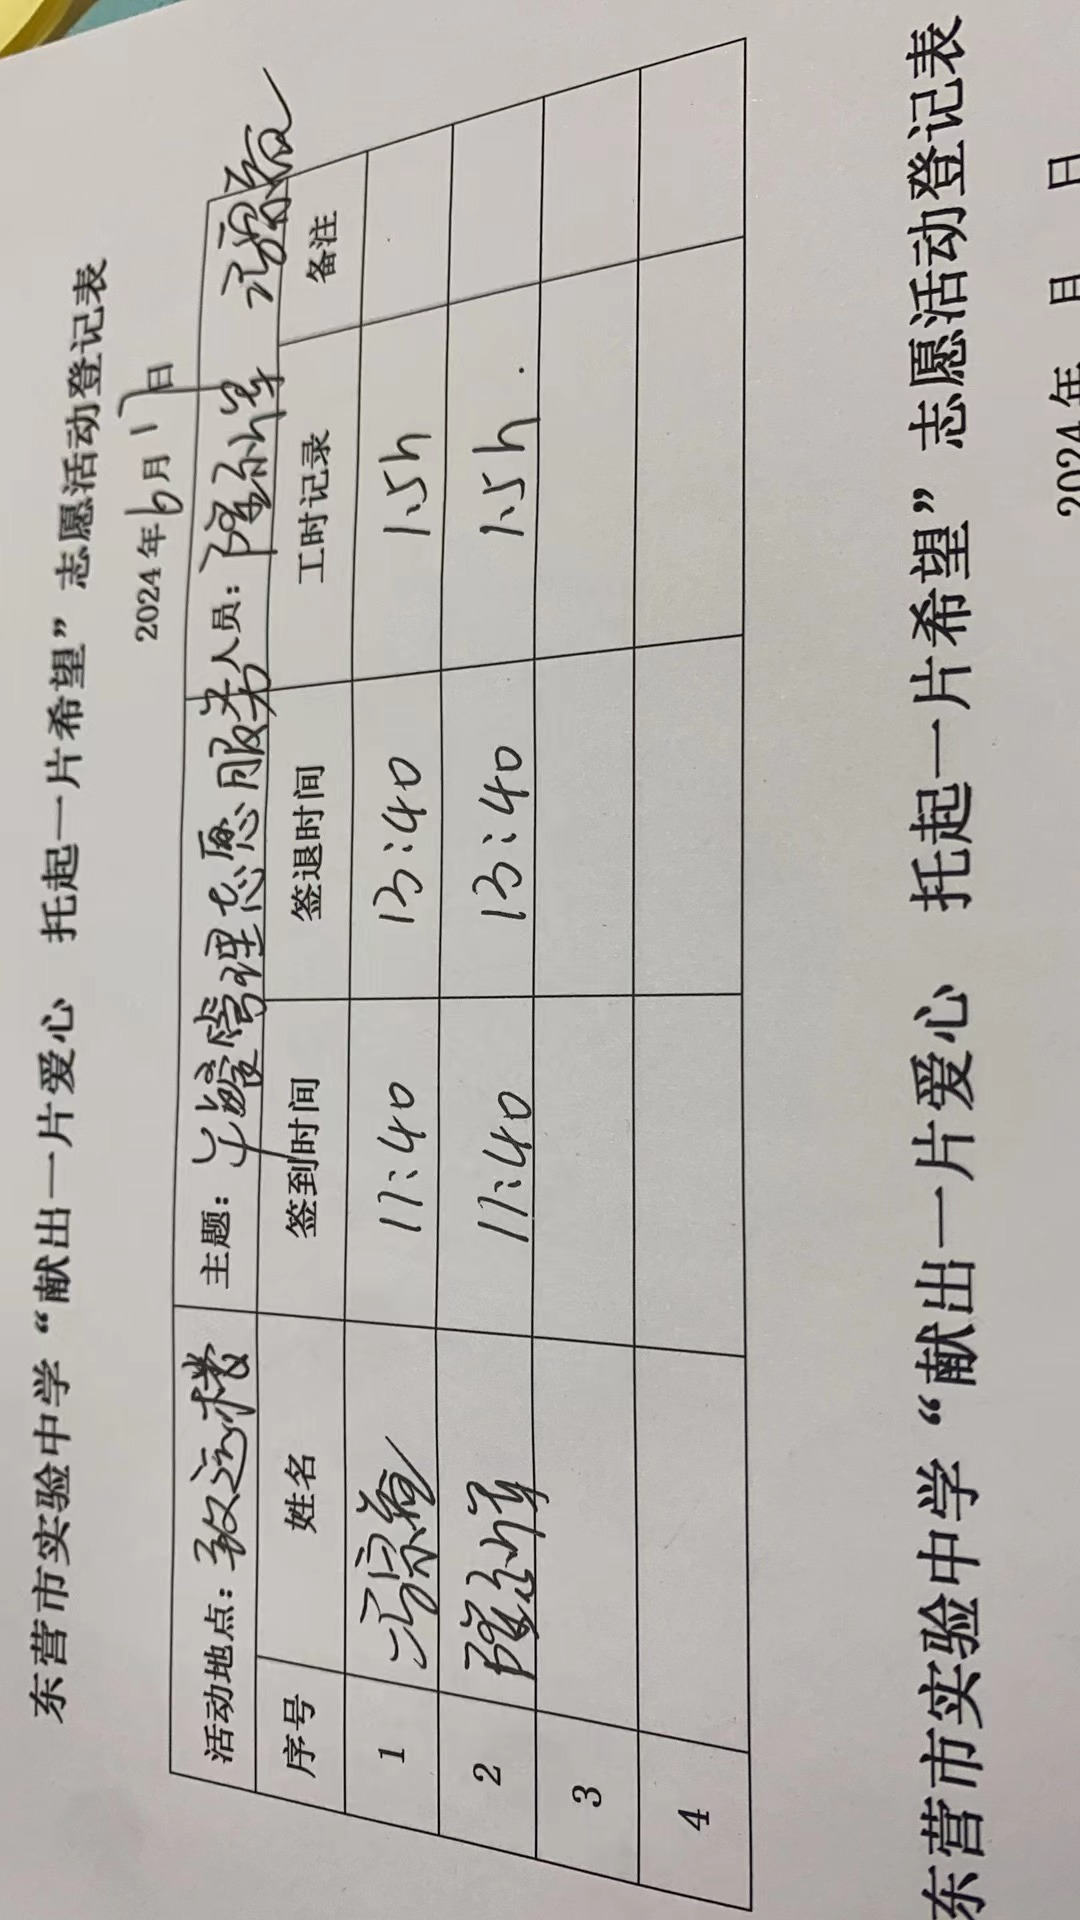 东营市实验中学“献出一片爱心 托起一片希望”志愿活动登记表
2024年6月17日
活动地点：致远楼 主题：午餐管理志愿服务 人员：
序号 姓名 签到时间 签退时间 工时记录 备注
1 11:40 13:40 1.5h
2 11:40 13:40 1.5h.
3
4
东营市实验中学“献出一片爱心 托起一片希望”志愿活动登记表
2024年 月 日